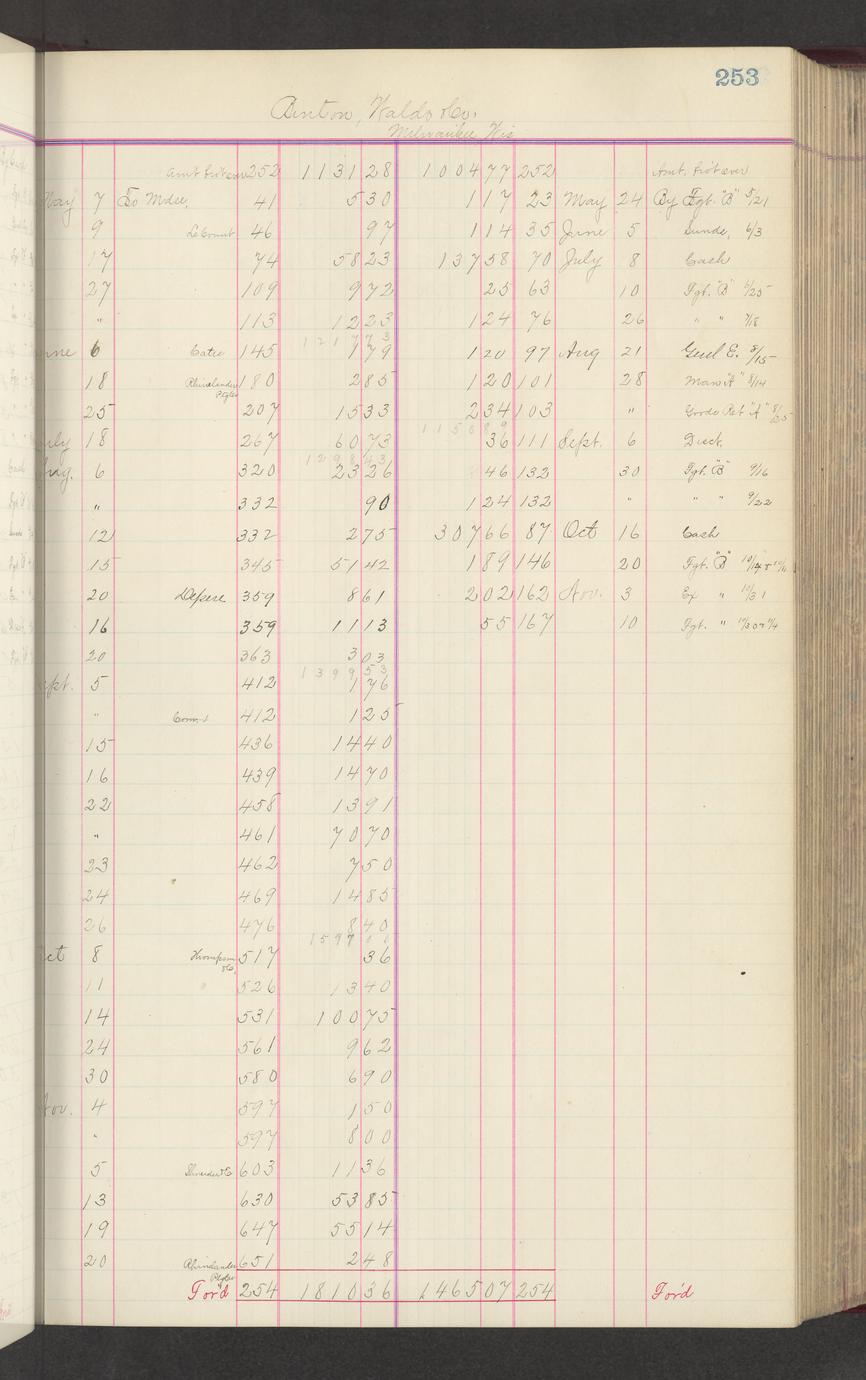 253
Benton, Waldo & Co.
Milwaukee Wis
Amt. fro't over 252 1131 28 1004 77 252 Amt. fro't over
May 7 To Mdse. 41 5 30 1 17 23 May 24 By Fgt. "B" 5/21
9 46 97 1 14 35 June 5 Sunds, 6/3
17 74 58 23 137 58 70 July 8 Cash
27 109 9 72 25 63 10 Fgt. "B" 6/25
" 113 12 23 1 24 76 26 " " 7/18
1217 73
une 6 Cates 145 1 79 1 20 97 Aug 21 Genl E. 8/15
18 Rhinelander 180 2 85 1 20 101 28 Mans "A" 8/14
25 207 15 33 2 34 103 " Goods Ret "A"
1150 89
uly 18 267 60 73 36 111 Sept. 6 Disct.
1298 43
Aug. 6 320 23 26 46 132 30 Fgt. "B" 9/16
" 332 90 1 24 132 " " " 9/22
12 332 2 75 307 66 87 Oct 16 Cash
15 345 51 42 1 89 146 20 Fgt. "B"
20 Depere 359 8 61 2 02 162 Nov. 3 Ex " 10/31
16 359 11 13 55 167 10 Fgt. " 10/30 & 11/4
20 363 3 03
1399 53
ept. 5 412 1 76
" 412 1 25
15 436 14 40
16 439 14 70
22 458 13 91
" 461 70 70
23 462 7 50
24 469 14 85
26 476 8 40
1597 00
ct 8 Thompson & Co. 517 36
11 526 13 40
14 531 100 75
24 561 9 62
30 580 6 90
Nov. 4 597 1 50
" 597 8 00
5 603 11 36
13 630 53 85
19 647 55 14
20 Rhinelander 651 2 48
For'd 254 1810 36 1465 07 254 For'd